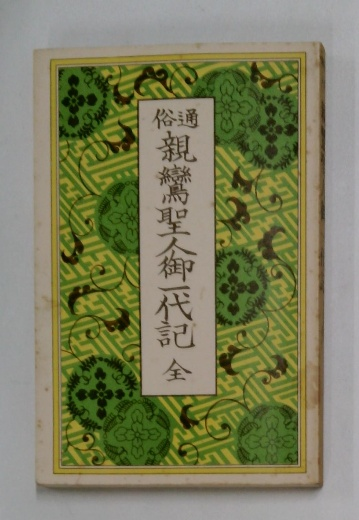 通俗
親鸞聖人御一代記 全